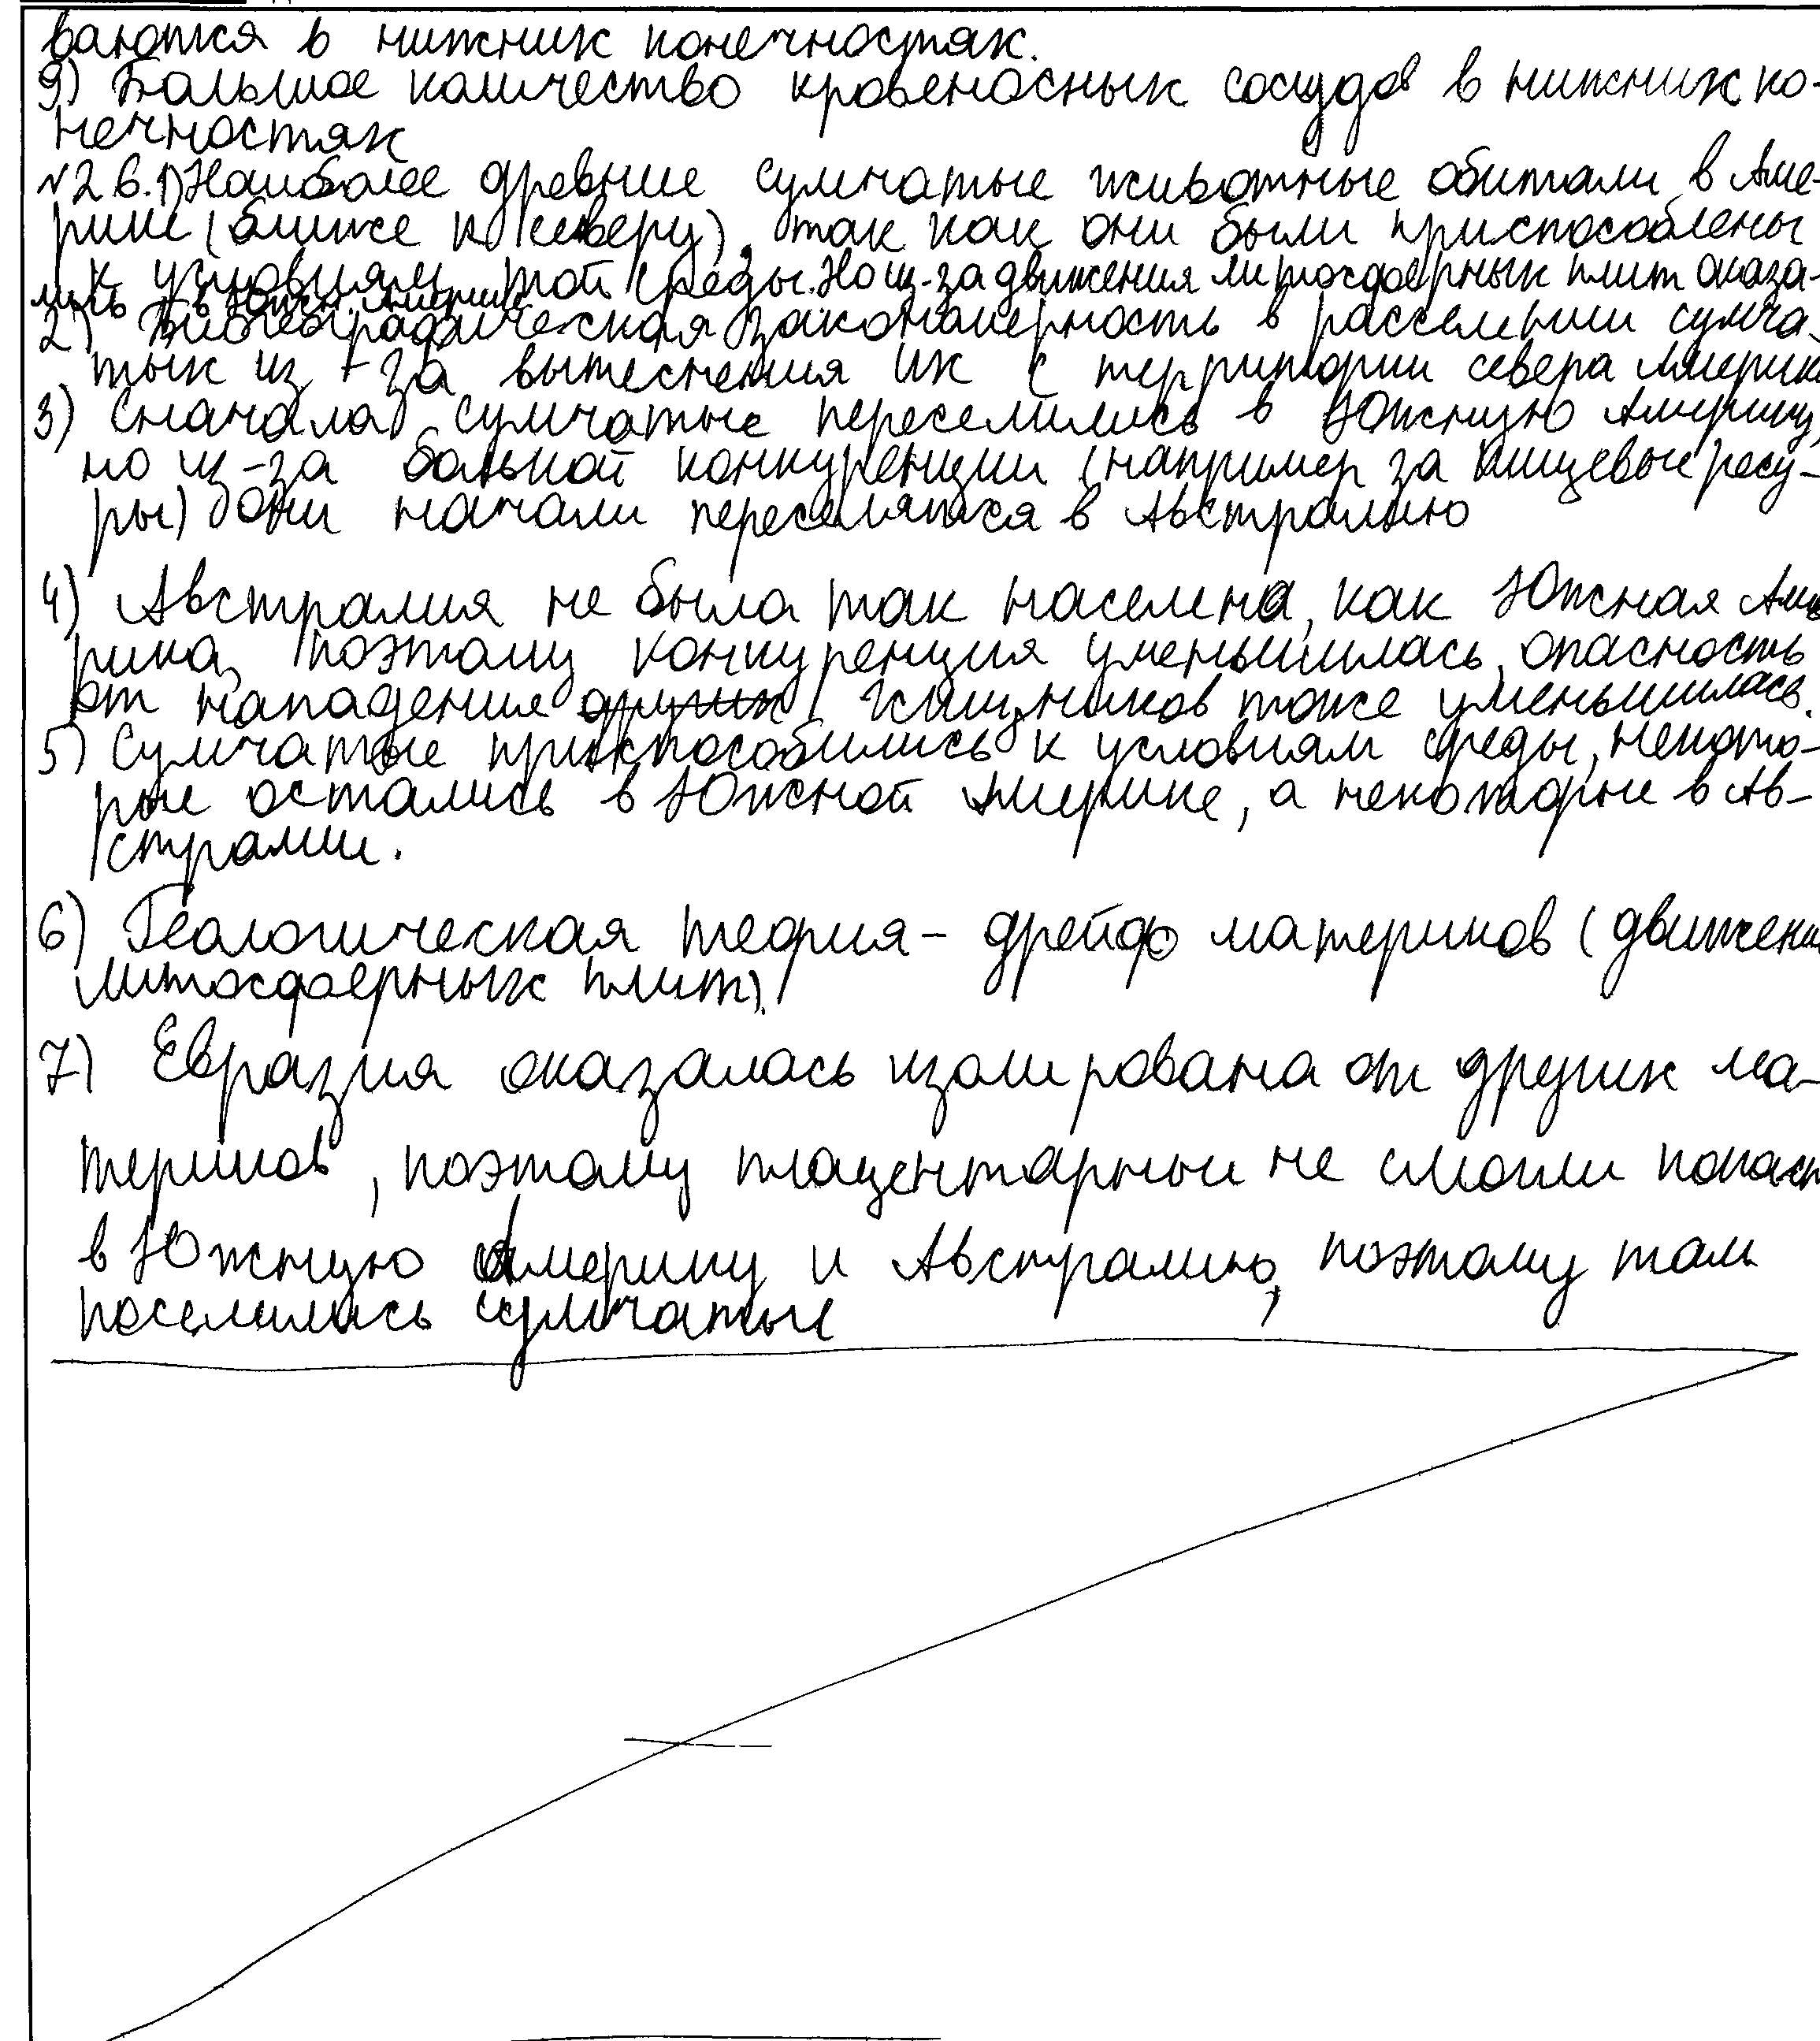 ваются в нижних конечностях.
9) Большое количество кровеносных сосудов в нижних ко-
нечностях
№26.1) Наиболее древние сумчатые животные обитали в Аме-
рике (ближе к северу), так как они были приспособлены
к условиям той среды. Но из-за движения литосферных плит оказа-
лись в Южн. Америке
2) Биогеографическая закономерность в расселении сумча-
тых из-за вытеснения их с территории севера Америки
3) Сначала сумчатые переселились в Южную Америку,
но из-за большой конкуренции (например за пищевые ресу-
ры) они начали переселяться в Австралию
4) Австралия не была так населена, как Южная Аме
рика, поэтому конкуренция уменьшилась, опасность
от нападения других хищников тоже уменьшилась.
5) Сумчатые приспособились к условиям среды, некото-
рые остались в Южной Америке, а некоторые в Ав-
стралии.
6) Геологическая теория - дрейф материков (движени
литосферных плит).
7) Евразия оказалась изолирована от других ма-
териков, поэтому плацентарные не смогли попаст
в Южную Америку и Австралию, поэтому там
поселились сумчатые